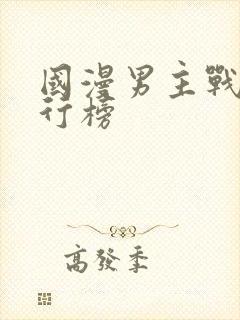 國漫男主戰
行榜
高發季